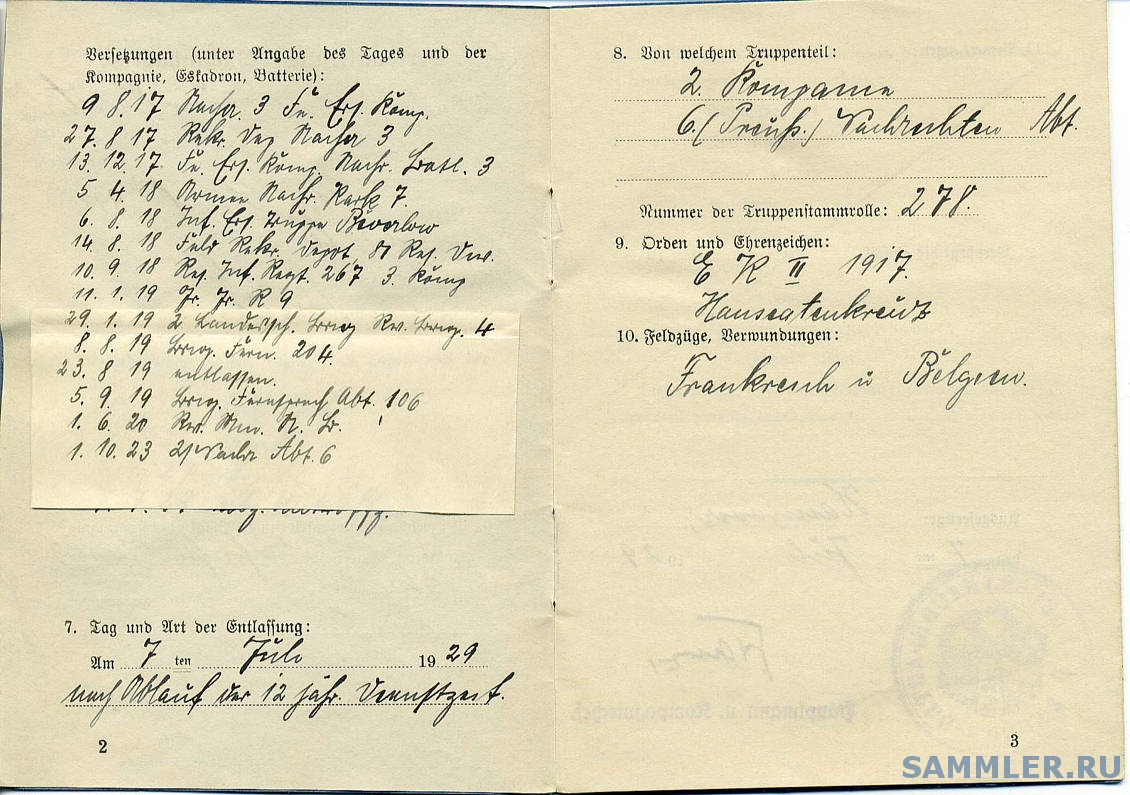 Versetzungen (unter Angabe des Tages und der
Kompagnie, Eskadron, Batterie):
9 8. 17 Nachr. 3 Fu. Ers. Komp.
27. 8 17 Rekr. Dep Nachr 3
13. 12. 17. Fu. Ers. Komp. Nachr. Batl. 3
5 4. 18 Armee Nachr. Park 7.
6. 8. 18 Inf. Ers. Truppe Beverloo
14. 8. 18 Feld Rekr. Depot, Res. Div.
10. 9. 18 Res. Inf. Regt. 267 3. Komp
11. 1. 19 R 9
29. 1. 19 2. Landessch. Brig Rw. Brig. 4
8. 8. 19 Brig. Fern. 204.
23. 8 19 entlassen.
5. 9. 19 Brig. Fernsprech Abt. 106
1. 6. 20 Rw. N.
1. 10. 23 2/ Nachr Abt. 6
7. Tag und Art der Entlassung:
Am 7 ten Juli 1929
nach Ablauf der 12 jähr. Dienstzeit.
2
8. Von welchem Truppenteil:
2. Kompanie
6. (Preuß.) Nachrichten Abt.
Nummer der Truppenstammrolle: 278.
9. Orden und Ehrenzeichen:
E K II 1917.
Hanseatenkreuz
10. Feldzüge, Verwundungen:
Frankreich u Belgien.
3
SAMMLER.RU